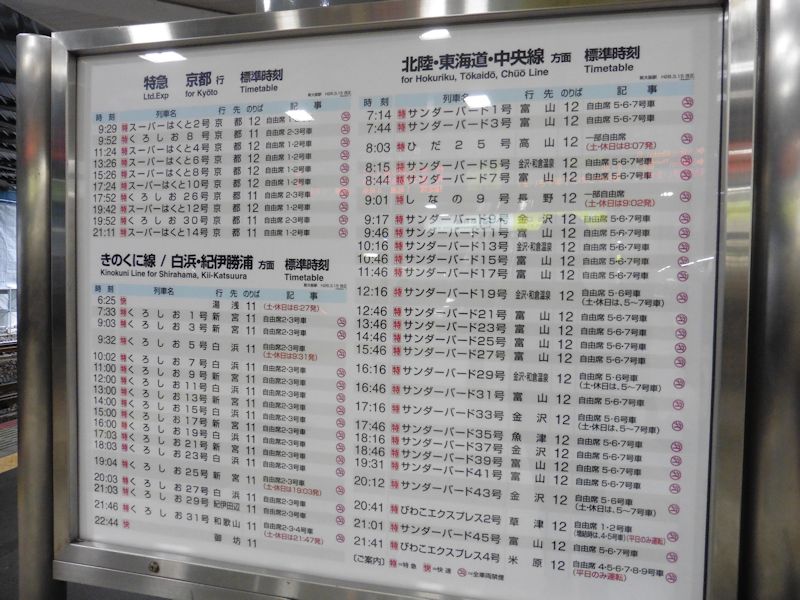 特急 京都 行 標準時刻
Ltd.Exp for Kyōto Timetable
時刻 列車名 行先 のりば 記事
9:29 特 スーパーはくと2号 京都 12 自由席 1-2号車
9:52 特 くろしお8号 京都 11 自由席 2-3号車
11:24 特 スーパーはくと4号 京都 12 自由席 1-2号車
13:26 特 スーパーはくと6号 京都 12 自由席 1-2号車
15:26 特 スーパーはくと8号 京都 12 自由席 1-2号車
17:24 特 スーパーはくと10号 京都 12 自由席 1-2号車
17:52 特 くろしお26号 京都 11 自由席 2-3号車
19:42 特 スーパーはくと12号 京都 12 自由席 1-2号車
19:52 特 くろしお30号 京都 11 自由席 2-3号車
21:11 特 スーパーはくと14号 京都 11 自由席 1-2号車
きのくに線 / 白浜・紀伊勝浦 方面 標準時刻
Kinokuni Line for Shirahama, Kii-Katsuura Timetable
時刻 列車名 行先 のりば 記事
6:25 快 湯浅 11 (土・休日は6:27発)
7:33 特 くろしお1号 新宮 11 自由席2-3号車
9:03 特 くろしお3号 新宮 11 自由席2-3号車
9:32 特 くろしお5号 白浜 11 自由席2-3号車
(土・休日は9:31発)
10:02 特 くろしお7号 白浜 11 自由席2-3号車
11:00 特 くろしお9号 新宮 11 自由席2-3号車
12:00 特 くろしお11号 白浜 11 自由席2-3号車
13:00 特 くろしお13号 新宮 11 自由席2-3号車
14:00 特 くろしお15号 白浜 11 自由席2-3号車
15:00 特 くろしお17号 新宮 11 自由席2-3号車
16:00 特 くろしお19号 白浜 11 自由席2-3号車
17:03 特 くろしお21号 新宮 11 自由席2-3号車
18:03 特 くろしお23号 白浜 11 自由席2-3号車
19:04 特 くろしお25号 新宮 11 自由席2-3号車
(土・休日は19:03発)
20:03 特 くろしお27号 白浜 11 自由席2-3号車
21:03 特 くろしお29号 紀伊田辺 11 自由席2-3号車
21:46 特 くろしお31号 和歌山 11 自由席2-3-4号車
(土・休日は21:47発)
22:44 快 御坊 11
北陸・東海道・中央線 方面 標準時刻
for Hokuriku, Tōkaidō, Chūō Line Timetable
時刻 列車名 行先 のりば 記事
7:14 特 サンダーバード1号 富山 12 自由席 5-6-7号車
7:44 特 サンダーバード3号 富山 12 自由席 5-6-7号車
8:03 特 ひだ25号 高山 12 一部自由席
(土・休日は8:07発)
8:15 特 サンダーバード5号 金沢・和倉温泉 12 自由席 5-6-7号車
8:44 特 サンダーバード7号 富山 12 自由席 5-6-7号車
9:01 特 しなの9号 長野 12 一部自由席
(土・休日は9:02発)
9:17 特 サンダーバード9号 金沢 12 自由席 5-6-7号車
9:46 特 サンダーバード11号 富山 12 自由席 5-6-7号車
10:16 特 サンダーバード13号 金沢・和倉温泉 12 自由席 5-6-7号車
10:46 特 サンダーバード15号 富山 12 自由席 5-6-7号車
11:46 特 サンダーバード17号 富山 12 自由席 5-6-7号車
12:16 特 サンダーバード19号 金沢・和倉温泉 12 自由席 5-6号車
(土・休日は、5~7号車)
12:46 特 サンダーバード21号 富山 12 自由席 5-6-7号車
13:46 特 サンダーバード23号 富山 12 自由席 5-6-7号車
14:46 特 サンダーバード25号 富山 12 自由席 5-6-7号車
15:46 特 サンダーバード27号 富山 12 自由席 5-6-7号車
16:16 特 サンダーバード29号 金沢・和倉温泉 12 自由席 5-6号車
(土・休日は、5~7号車)
16:46 特 サンダーバード31号 富山 12 自由席 5-6-7号車
17:16 特 サンダーバード33号 金沢 12 自由席 5-6号車
(土・休日は、5~7号車)
17:46 特 サンダーバード35号 魚津 12 自由席 5-6-7号車
18:16 特 サンダーバード37号 金沢 12 自由席 5-6-7号車
18:46 特 サンダーバード39号 富山 12 自由席 5-6-7号車
19:31 特 サンダーバード41号 富山 12 自由席 5-6-7号車
20:12 特 サンダーバード43号 金沢 12 自由席 5-6号車
(土・休日は、5~7号車)
20:41 特 びわこエクスプレス2号 草津 12 自由席 1-2号車
(増結時は、4-5号車)(平日のみ運転)
21:01 特 サンダーバード45号 富山 12 自由席 5-6-7号車
21:41 特 びわこエクスプレス4号 米原 12 自由席 4-5-6-7-8-9号車
(平日のみ運転)
〔ご案内〕 特=特急 快=快速 =全車両禁煙